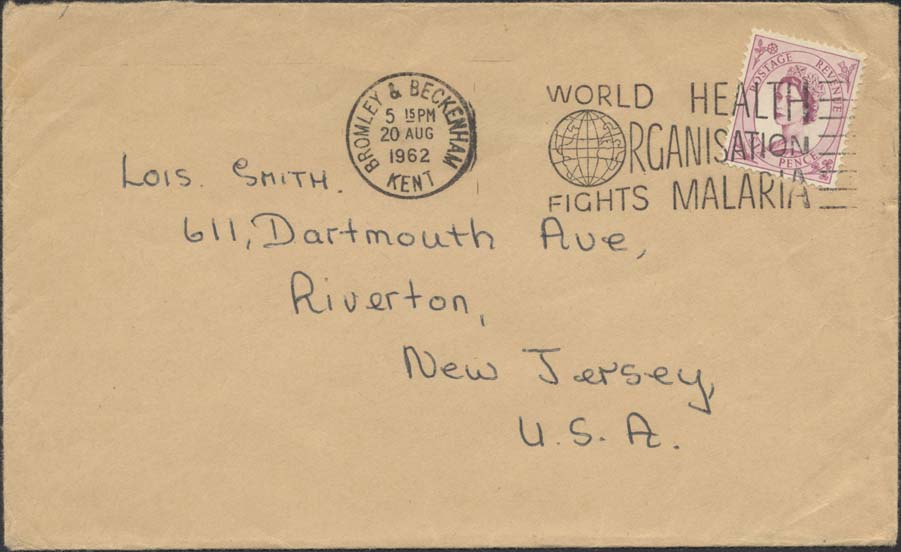 BROMLEY & BECKENHAM
5 15PM
20 AUG
1962
KENT
WORLD HEALTH
ORGANISATION
FIGHTS MALARIA
POSTAGE REVENUE
PENCE
Lois. Smith.
611, Dartmouth Ave,
Riverton,
New Jersey,
U.S.A.